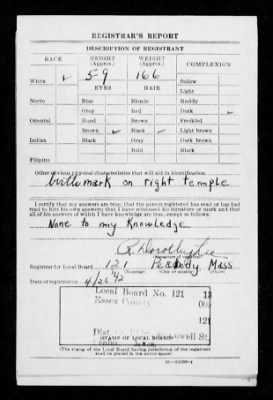 REGISTRAR'S REPORT
DESCRIPTION OF REGISTRANT
RACE HEIGHT (Approx.) WEIGHT (Approx.) COMPLEXION
White ✓ 5-9 166 Sallow
EYES HAIR Light
Negro Blue Blonde Ruddy
Gray Red Dark ✓
Oriental Hazel Black Freckled
Brown ✓ Brown Light brown
Indian Black Gray Dark brown
Bald Black
Filipino
Other obvious physical characteristics that will aid in identification
birthmark on right temple
I certify that my answers are true; that the person registered has read or has had
read to him his own answers; that I have witnessed his signature or mark and that
all of his answers of which I have knowledge are true, except as follows:
None to my knowledge
(Signature of registrar)
Registrar for Local Board 121 Peabody Mass
Date of registration 4/26/42
Local Board No. 121 13
Essex County
(STAMP OF LOCAL BOARD)
(The stamp of the Local Board having jurisdiction of the registrant
shall be placed in the above space)